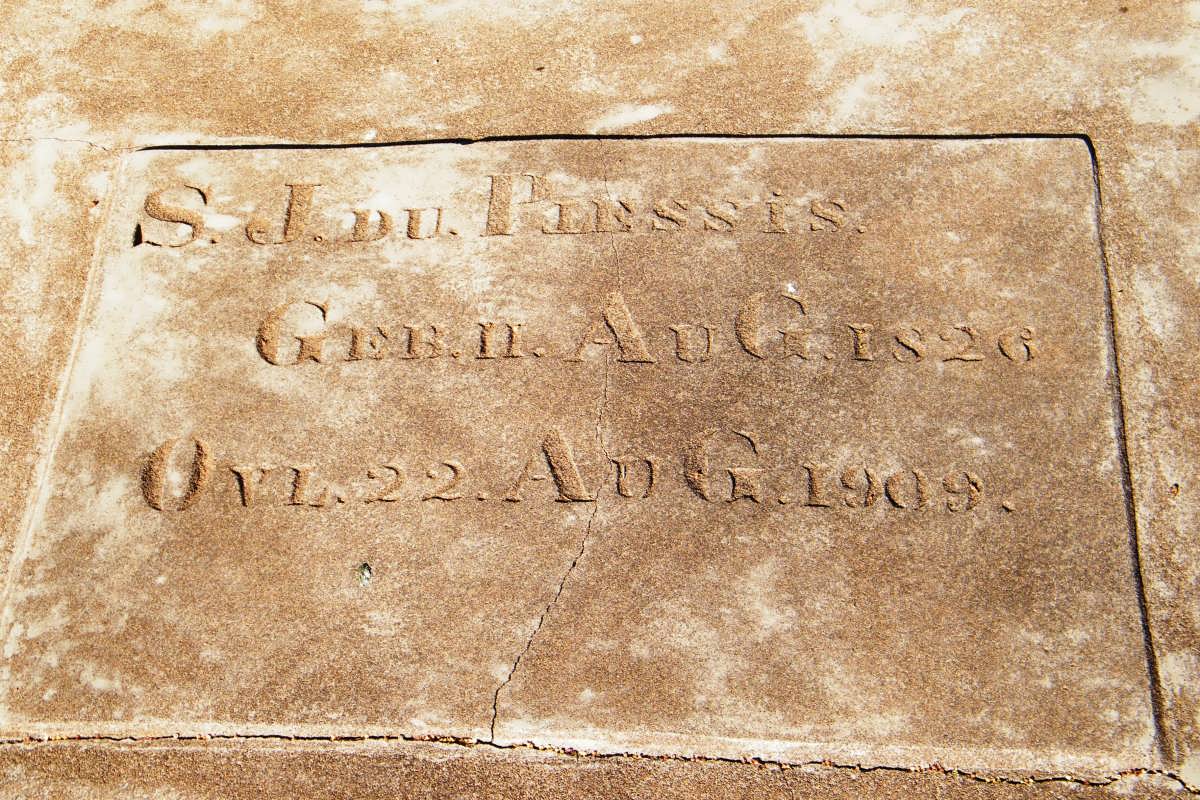 S. J. DU. PLESSIS.
GEB. 11. AUG. 1826
OVL. 22. AUG. 1909.